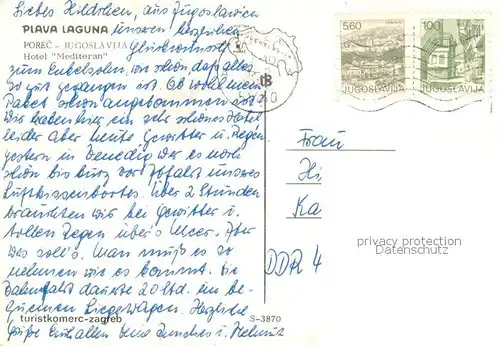 Liebes Hildchen, aus Jugoslawien
unseren herzlichen
PLAVA LAGUNA
POREČ - JUGOSLAVIJA
Hotel "Mediteran"
Glückwunsch
zum Enkelsohn, wie schön, daß alles
so gut gegangen ist. Ob wohl mein
Paket schon angekommen ist
Wir haben hier ein sehr schönes Hotel
leider aber heute Gewitter u. Regen
gestern in Venedig war es noch
schön bis kurz vor Abfahrt unseres
Luftkissenbootes. Über 2 Stunden
brauchten wir bei Gewitter u.
tollen Regen über's Meer. Aber
was soll's. Man muß es so
nehmen wie es kommt. Die
Bahnfahrt dauerte 20 Std. im be-
quemen Liegewagen. Herzliche
Grüße Euch allen Eure u. Helmut
turistkomerc-zagreb
S-3870
5.60
JUGOSLAVIJA
1.00
JUGOSLAVIJA
Frau
Hi
Ka
DDR 4
privacy protection
Datenschutz